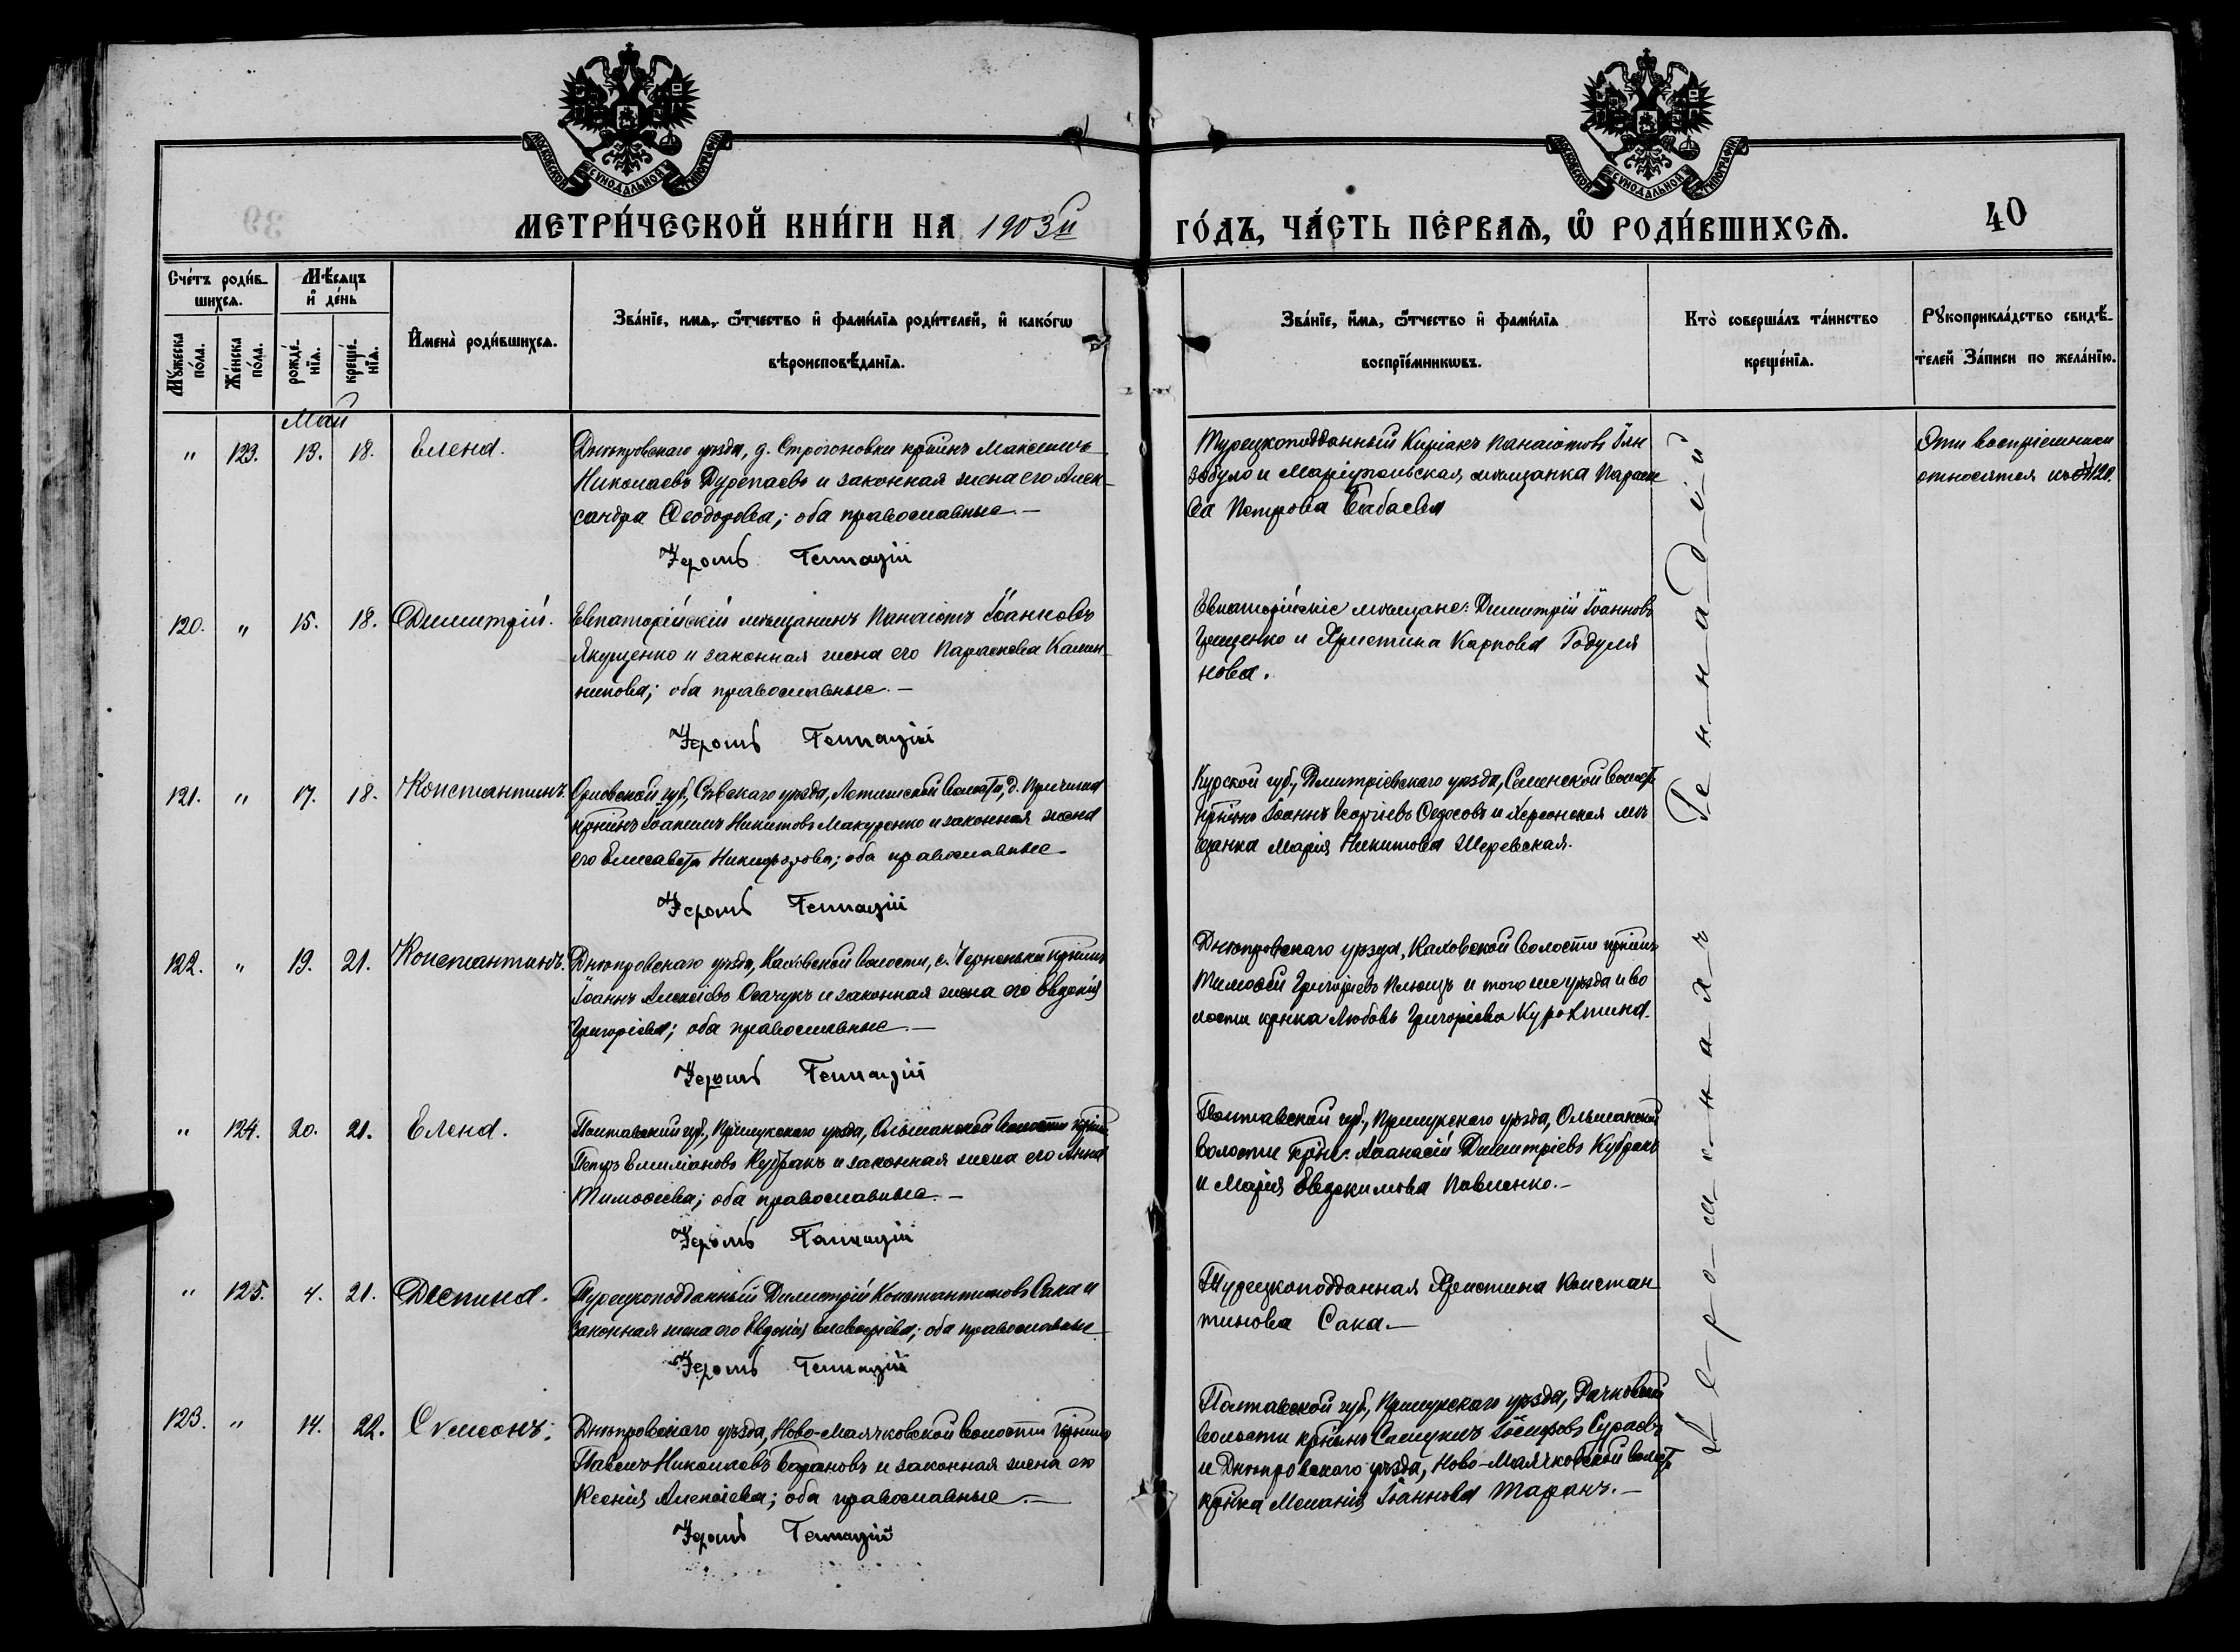 МОСКОВСКОЙ СѴНОДАЛЬНОЙ ТИПОГРАФІИ
МОСКОВСКОЙ СѴНОДАЛЬНОЙ ТИПОГРАФІИ
МЕТРИ́ЧЕСКОЙ КНИ́ГИ НА 1903й
ГО́ДЪ, ЧА́СТЬ ПЕ́РВАѦ, Ѡ҆ РОДИ́ВШИХСѦ.
40
Сче́тъ роди́в-
шихсѧ.
Мꙋ́жеска по́ла.
Же́нска по́ла.
Мѣ́сяцъ
и҆ де́нь
рожде́-
нїѧ.
креще́-
нїѧ.
И҆мена̀ роди́вшихсѧ.
Зва́нїе, имѧ, ѻ҆́тчество и҆ фами́лїѧ роди́телей, и҆ како́гѡ
вѣроисповѣ́данїѧ.
Зва́нїе, и҆́мѧ, ѻ҆́тчество и҆ фами́лїѧ
воспрїе́мникѡвъ.
Кто̀ соверша́лъ та́инство
креще́нїѧ.
Рꙋкоприкла́дство свидѣ́-
телей За́писи по жела́нїю.
Май
" 123. 13. 18. Елена.
Днѣпровскаго уѣзда, д. Строгоновки кр̃нинъ Максимъ
Николаевъ Дурепаевъ и законная жена его Алек-
сандра Ѳеодорова; оба православные.—
Іером̃ Геннадій
Турецкоподданный Киріакъ Панаіотовъ
и Маріупольская мѣщанка Параске
ва Петрова Бабаева
Эти воспріемники
относятся къ № 120.
120. " 15. 18. Димитрій.
Евпаторійскій мѣщанинъ Панаіотъ Іоанновъ
Якущенко и законная жена его Параскева Калин-
никова; оба православные.—
Іером̃ Геннадій
Евпаторійскіе мѣщане: Димитрій Іоанновъ
Грищенко и Христина Карпова Годуля
нова.
121. " 17. 18. Константинъ.
Орловской губ., Сѣвскаго уѣзда, волости, д.
кр̃нинъ Іоакимъ Никитовъ Макуренко и законная жена
его Елисавета Никифорова; оба православные
Іером̃ Геннадій
Курской губ., Дмитріевскаго уѣзда, волост.
кр̃нинъ Іоаннъ Георгіевъ Ѳедосовъ и Херсонская мѣ
щанка Марія Никитова Шеревская.
122. " 19. 21. Константинъ.
Днѣпровскаго уѣзда, Каховской волости, с. Черненьки кр̃нинъ
Іоаннъ Алексіевъ Осачукъ и законная жена его Евдокія
Григоріева; оба православные.—
Іером̃ Геннадій
Днѣпровскаго уѣзда, Каховской волости кр̃нинъ
Тимоѳей Григоріевъ Плющъ и того же уѣзда и во
лости кр̃нка Любовь Григоріева Курохтина.
" 124. 20. 21. Елена.
Полтавской губ., Прилукскаго уѣзда, Ольшанской волости кр̃нинъ
Петръ Емиліановъ Кубракъ и законная жена его Анна
Тимоѳеева; оба православные.—
Іером̃ Геннадій
Полтавской губ., Прилукскаго уѣзда, Ольшанской
волости кр̃не: Аѳанасій Димитріевъ Кубракъ
и Марія Евдокимова Павленко.—
" 125. 4. 21. Деспина.
Турецкоподданный Димитрій Константиновъ Сака и
законная жена его Евдокія Елевѳеріева; оба православные
Іером̃ Геннадій
Турецкоподданная Христина Констан
тинова Сака.—
123. " 14. 22. Сѵмеонъ.
Днѣпровскаго уѣзда, Ново-Маячковской волости кр̃нинъ
Павелъ Николаевъ Барановъ и законная жена его
Ксенія Алексіева; оба православные.—
Іером̃ Геннадій
Полтавской губ., Прилукскаго уѣзда,
волости кр̃нинъ Самуилъ Іосифовъ
и Днѣпровскаго уѣзда, Ново-Маячковской волост.
кр̃нка Меланія Іоаннова Таранъ.—
І-е-р-о-м-о-н-а-х-ъ Г-е-н-н-а-д-і-й